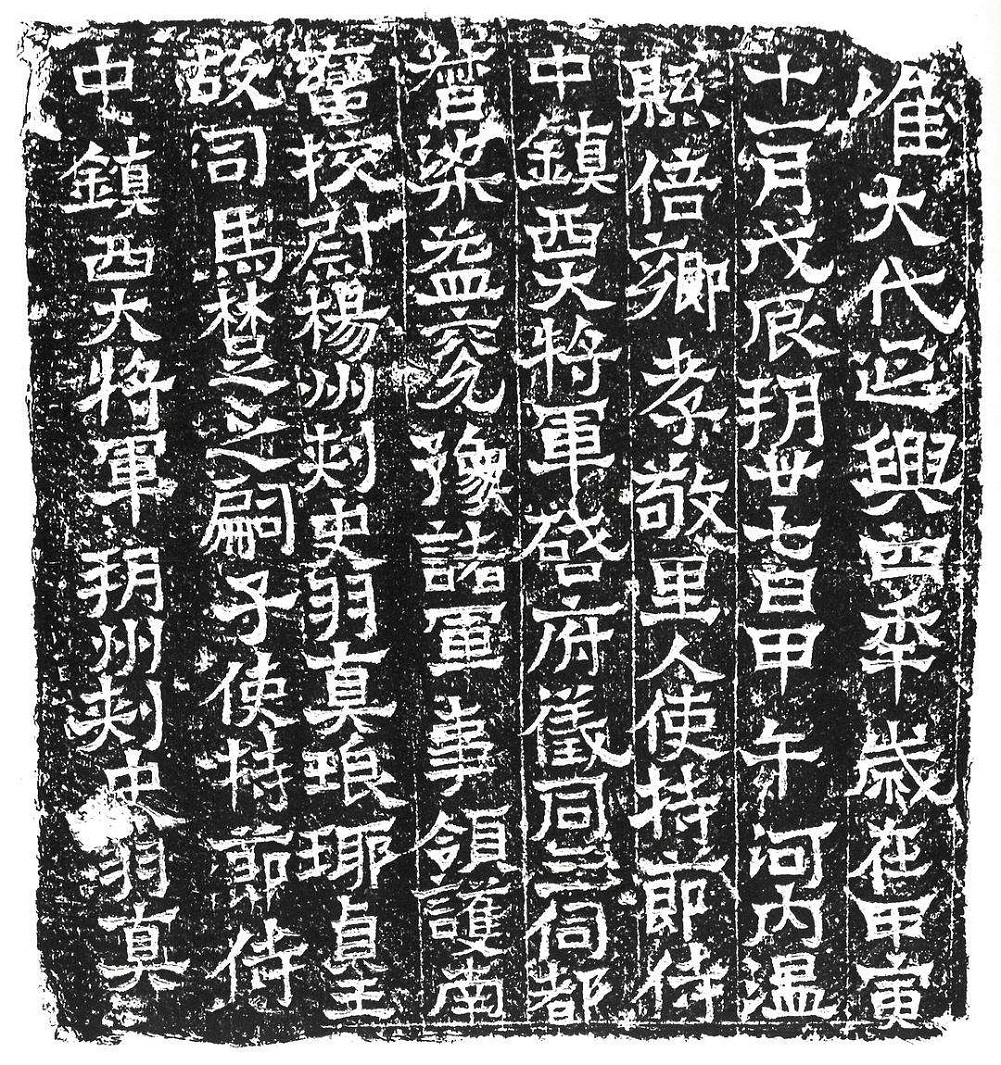 唯大代延興四年歲在甲寅
十一月戊辰朔廿七日甲午河內溫
縣倍鄉孝敬里人使持節侍
中鎮西大將軍啓府儀同三伺都
督梁益兖豫諸軍事領護南
蠻挍尉楊州刾史羽真琅琊貞王
故司馬楚之之嗣子使持節侍
中鎮西大將軍朔州刾史羽真